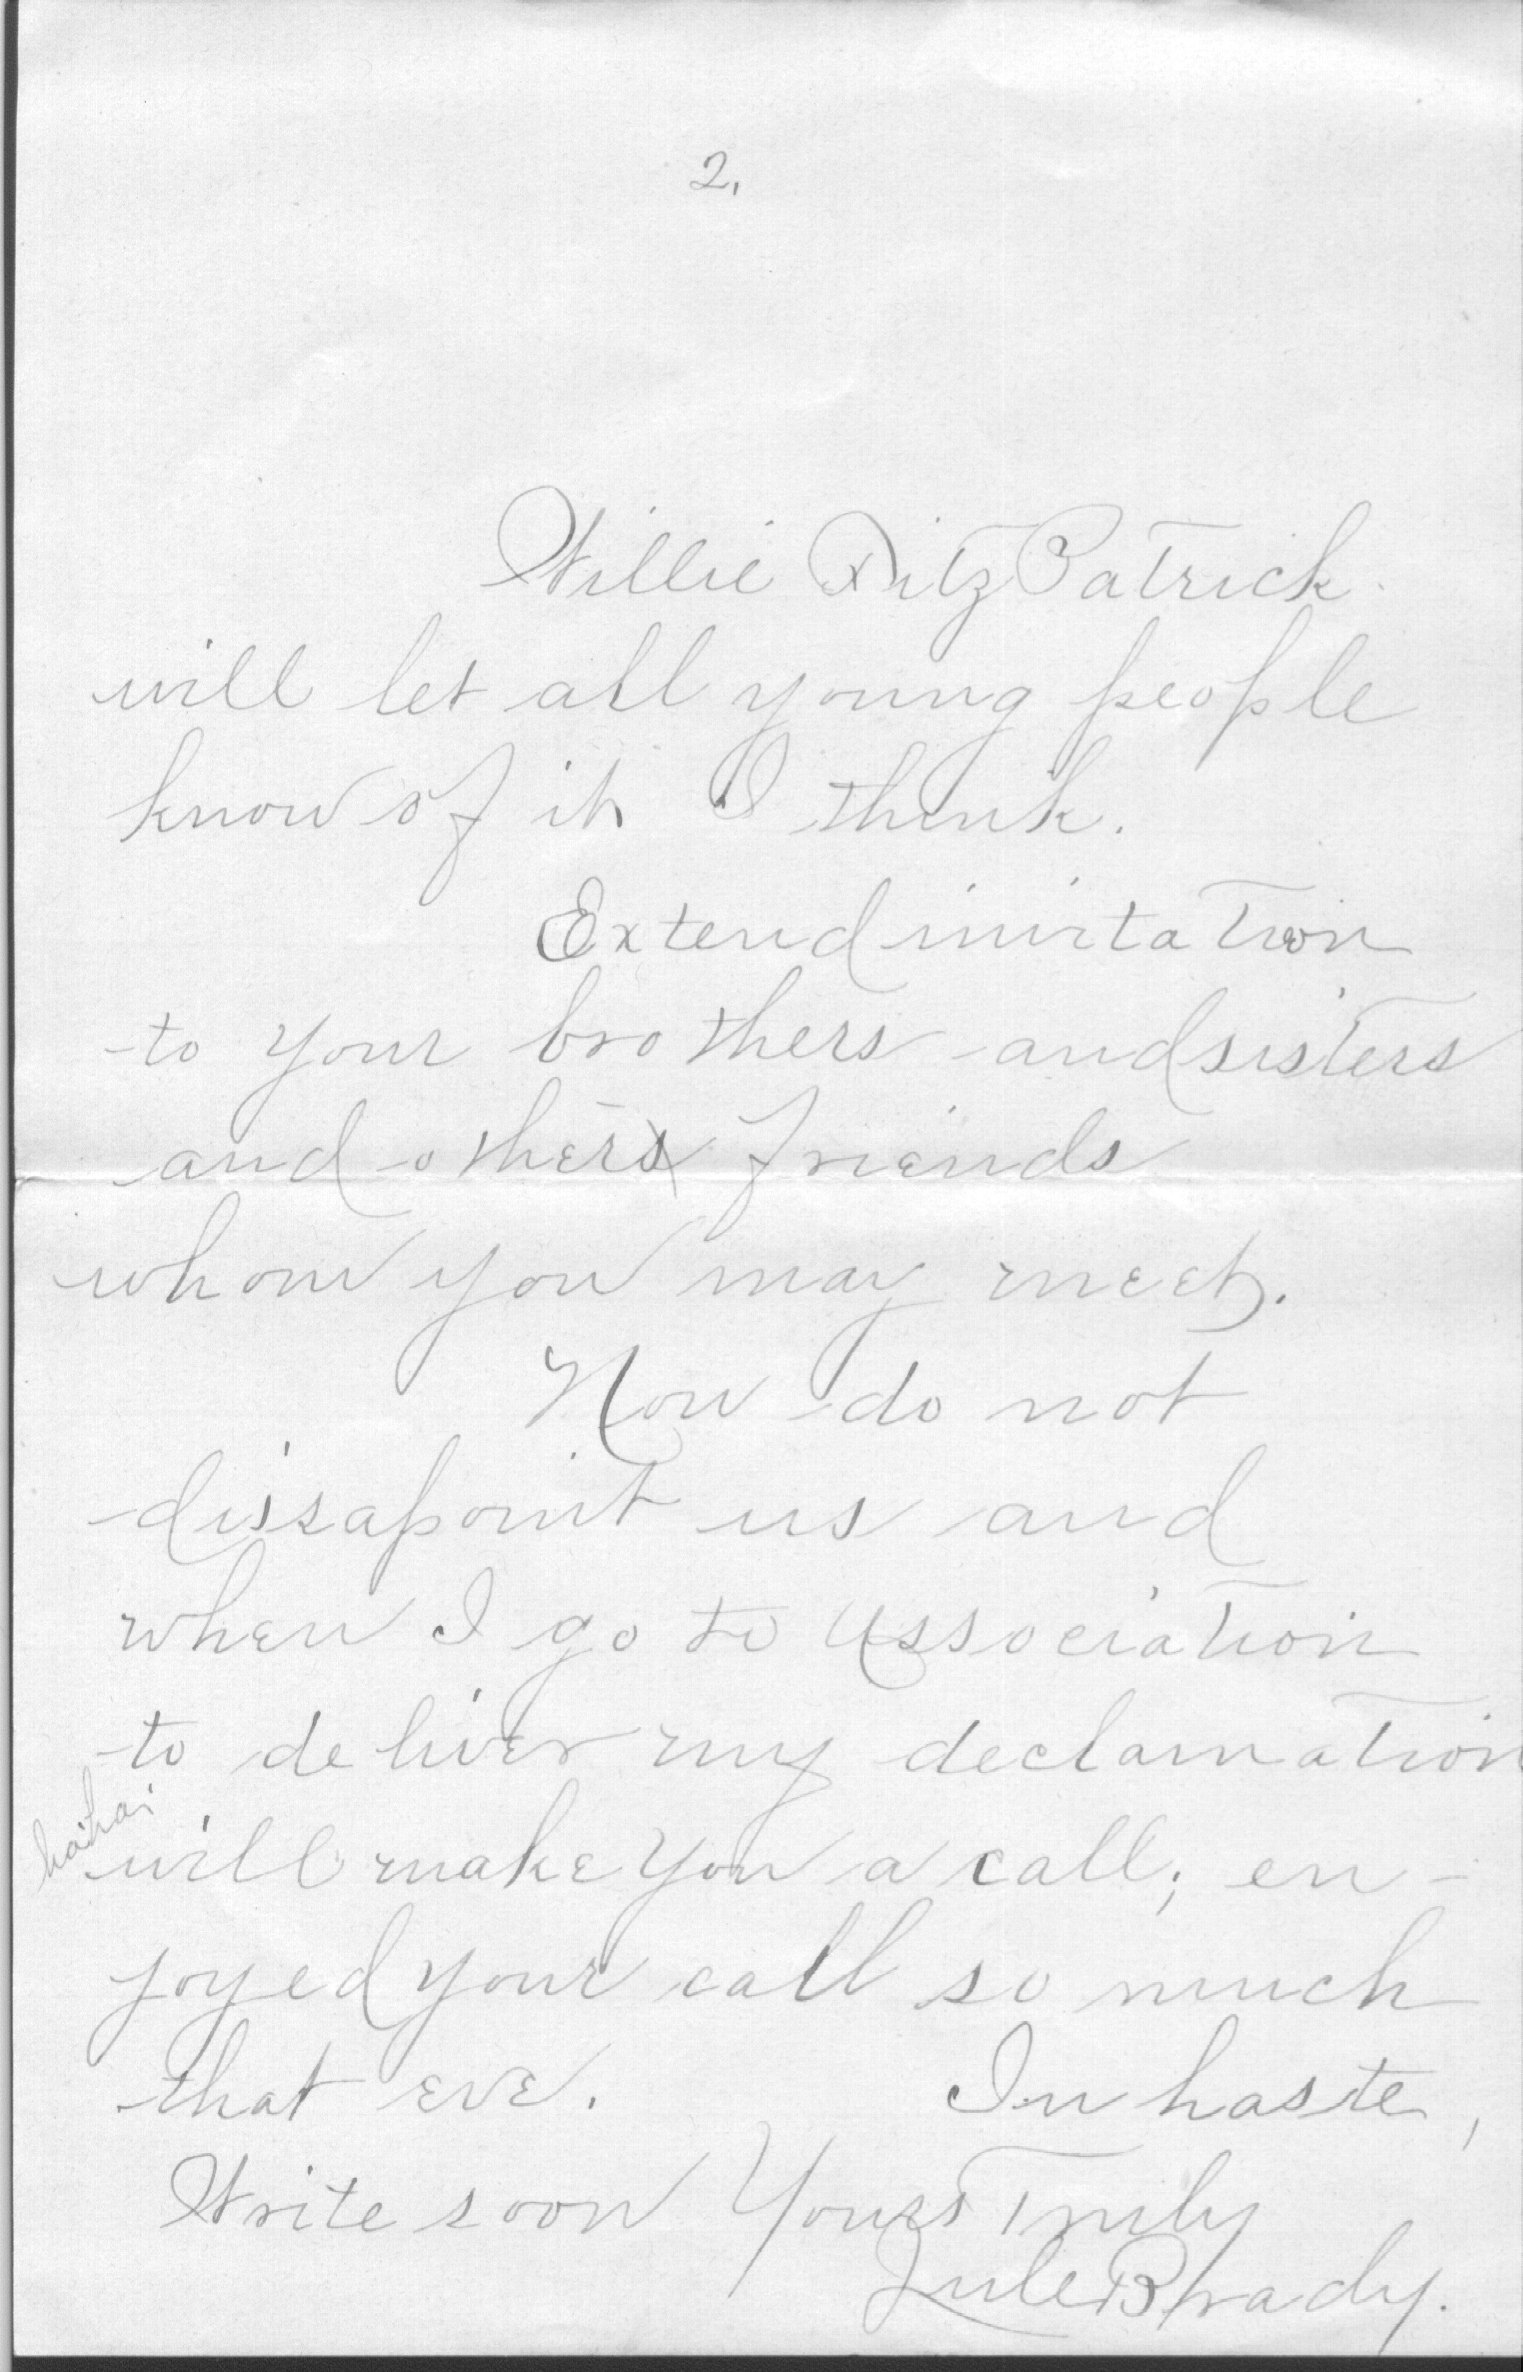 2.
Willie FitzPatrick
will let all young people
know of it I think.
Extend invitation
to your brothers and sisters
and other friends
whom you may meet.
Now do not
dissapoint us and
when I go to Association
to deliver my declamation
ha ha
will make you a call; en-
joyed your call so much
that eve. In haste,
Write soon Yours Truly
Jule Brady.